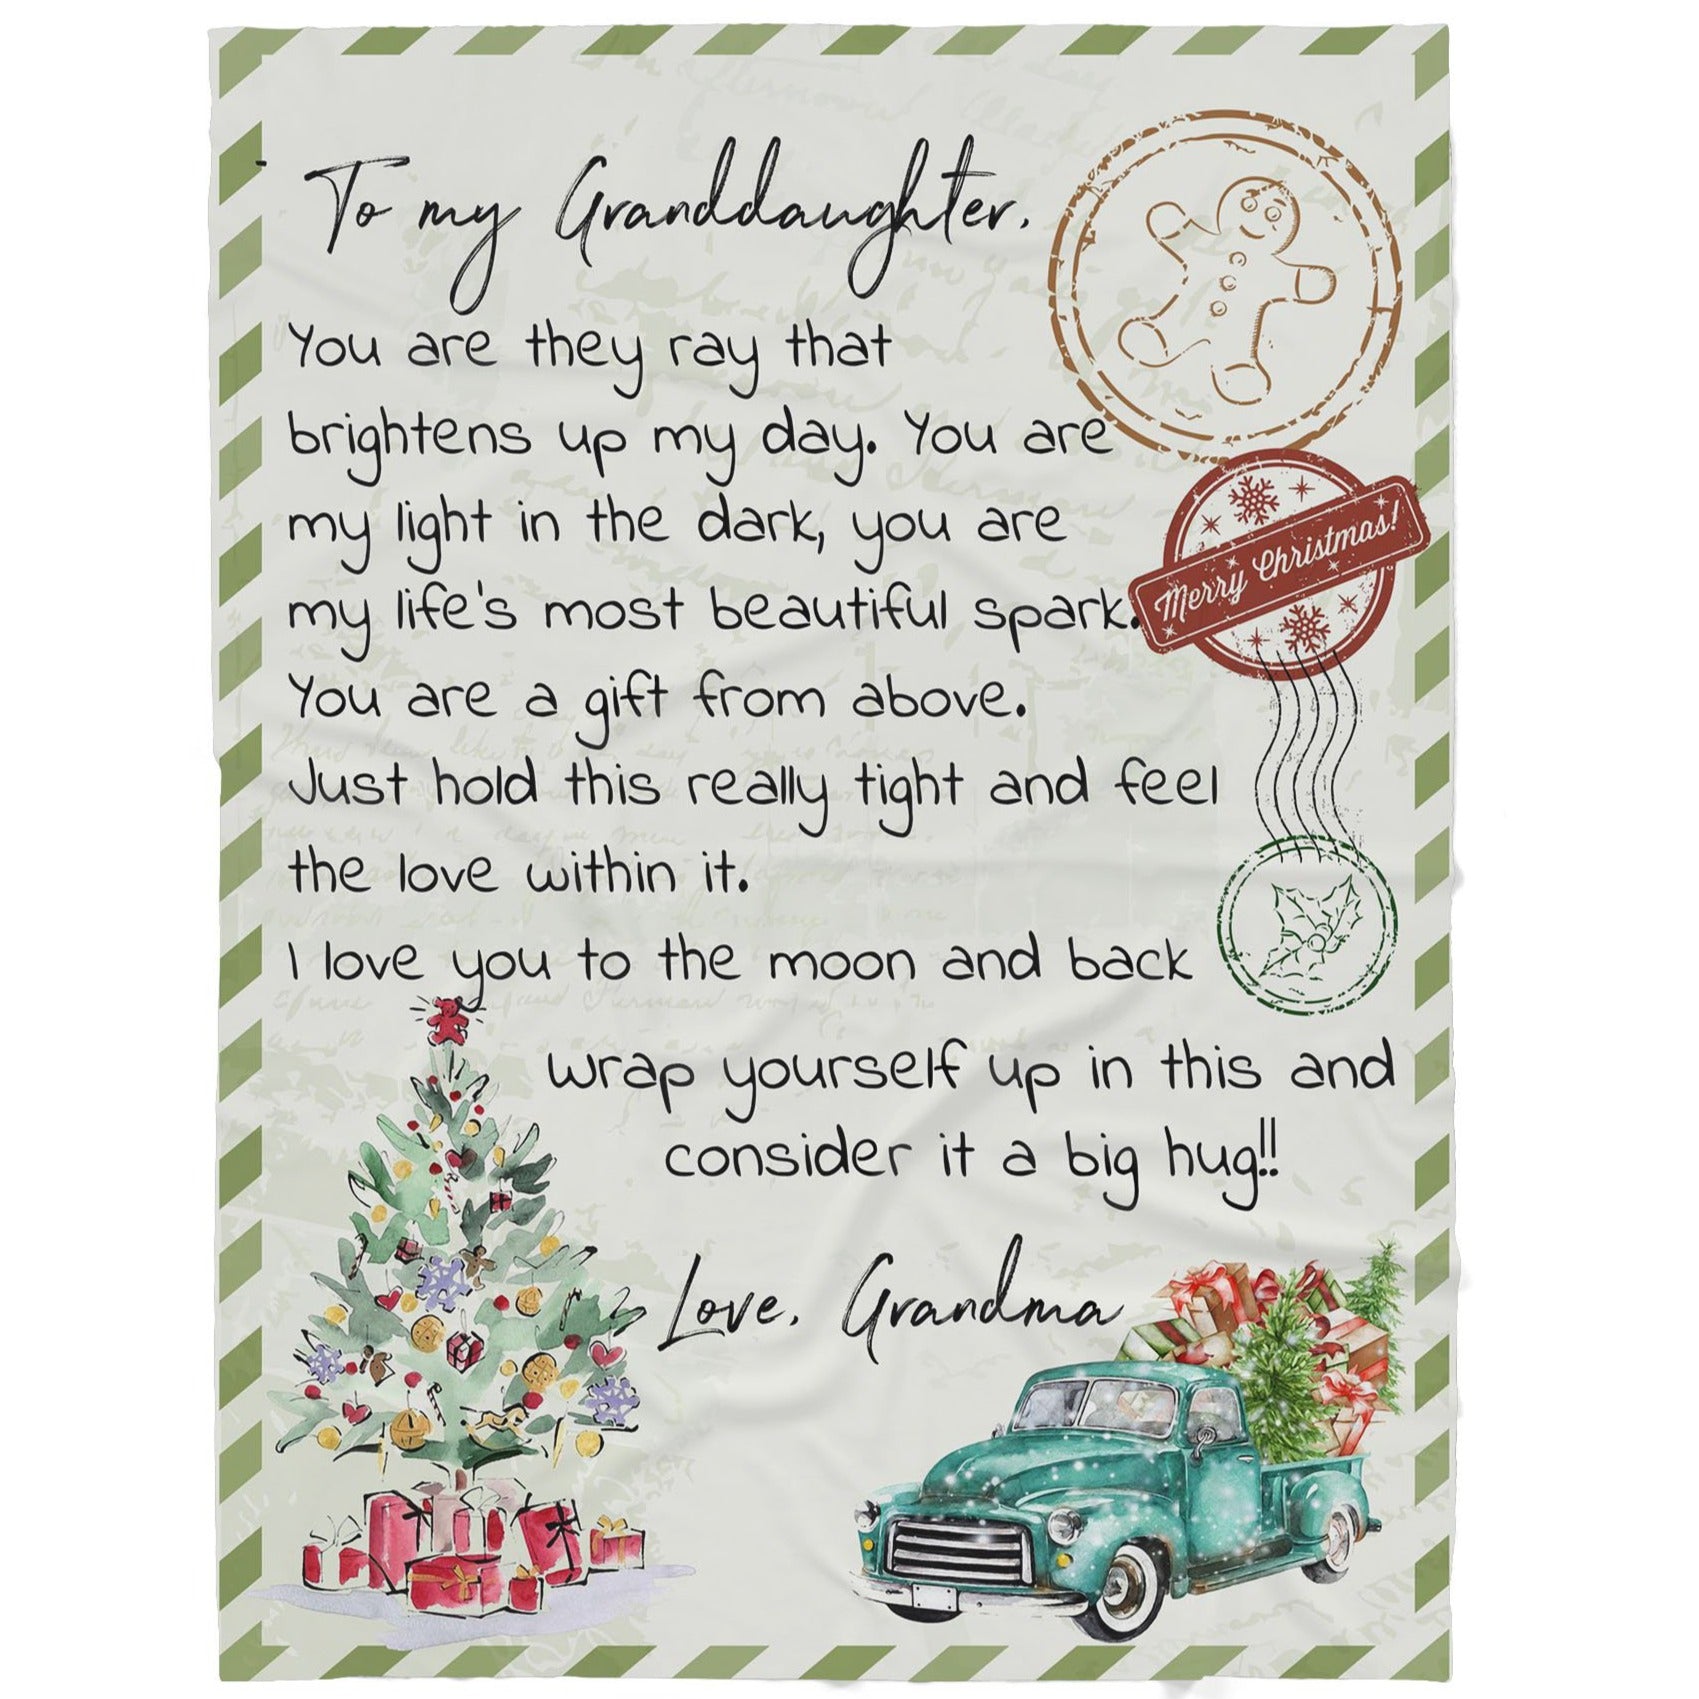 To my Granddaughter,
You are they ray that
brightens up my day. You are
my light in the dark, you are
my life's most beautiful spark.
Merry Christmas!
You are a gift from above.
Just hold this really tight and feel
the love within it.
I love you to the moon and back
wrap yourself up in this and
consider it a big hug!!
Love, Grandma